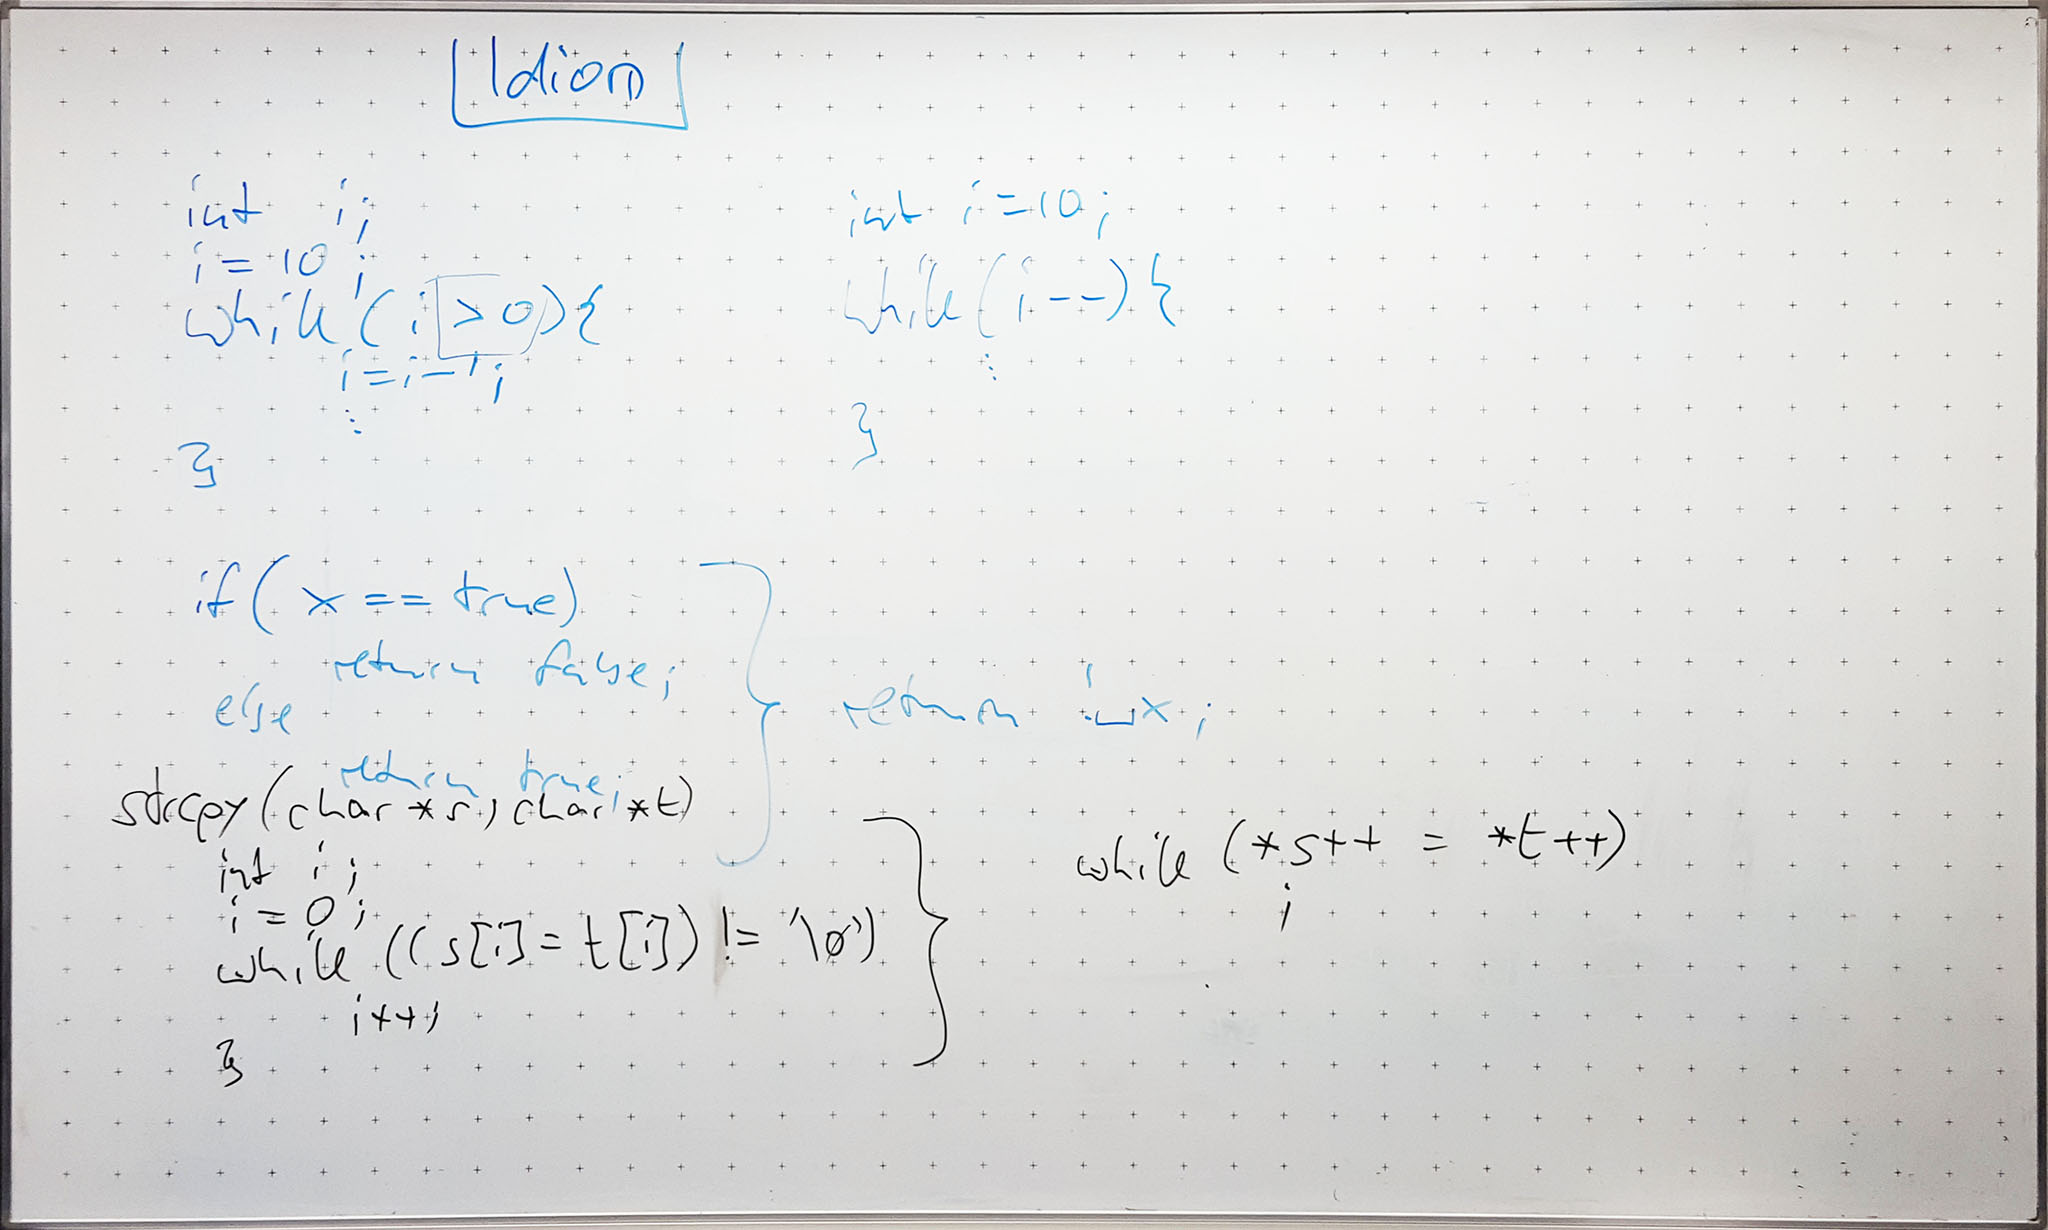 Idiom
int i;
i = 10;
while (i > 0) {
i = i - 1;
⋮
}
int i = 10;
while (i--) {
⋮
}
if ( x == true)
return false;
else
return true;
return !x;
strcpy (char *s, char *t)
int i;
i = 0;
while ((s[i] = t[i]) != '\0')
i++;
}
while (*s++ = *t++)
;